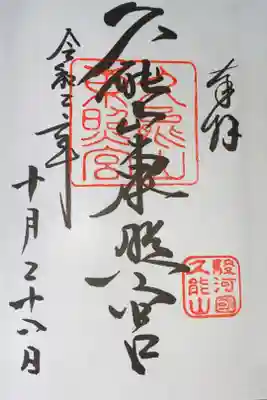 奉拝
久能山東照宮
令和二年
十月二十八日
久能山
東照宮
駿河国
久能山